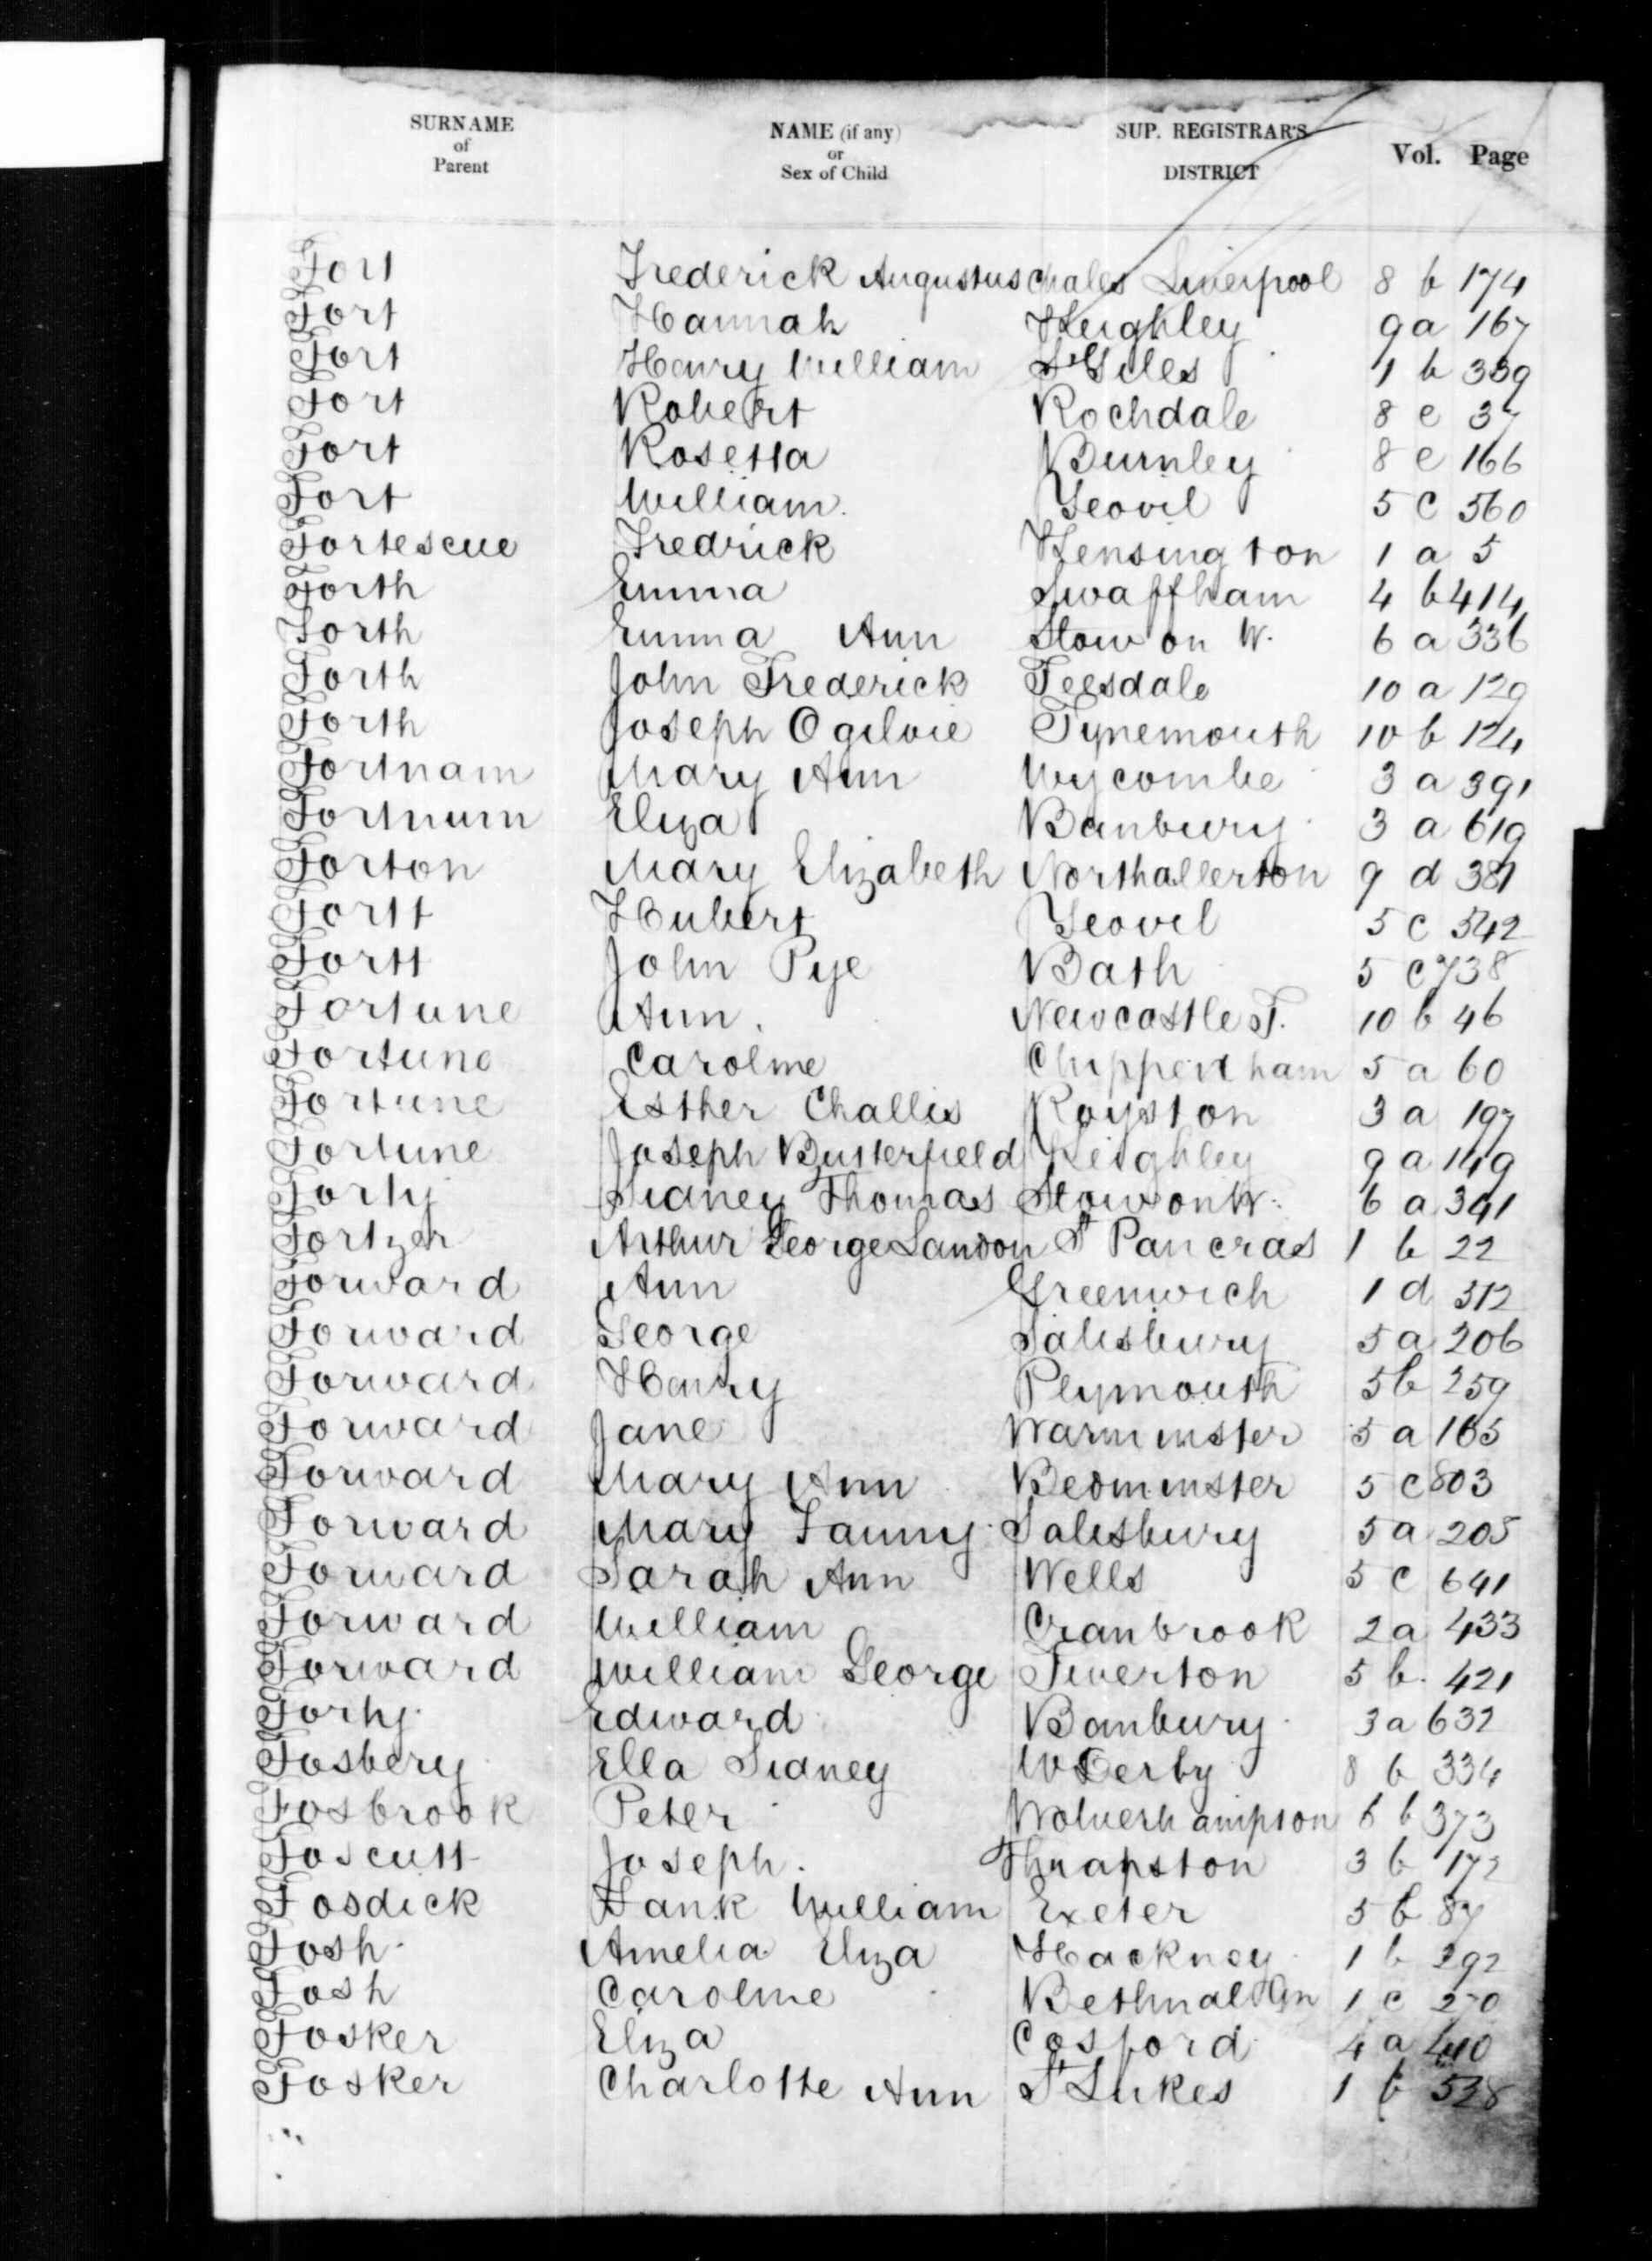 SURNAME of Parent NAME (if any) or Sex of Child SUP. REGISTRAR'S DISTRICT Vol. Page
Fort Frederick Augustus Chales Liverpool 8 b 174
Fort Hannah Keighley 9 a 167
Fort Henry William St Giles 1 b 339
Fort Robert Rochdale 8 e 37
Fort Rosetta Burnley 8 e 166
Fort William Yeovil 5 c 560
Fortescue Fredrick Kensington 1 a 5
Forth Emma Swaffham 4 b 414
Forth Emma Ann Stow on W. 6 a 336
Forth John Frederick Teesdale 10 a 129
Forth Joseph Ogilvie Tynemouth 10 b 124
Fortnam Mary Ann Wycombe 3 a 391
Fortnum Eliza Banbury 3 a 619
Forton Mary Elizabeth Northallerton 9 d 381
Fortt Hubert Yeovil 5 c 542
Fortt John Pye Bath 5 c 738
Fortune Ann. Newcastle T. 10 b 46
Fortune Caroline Chippenham 5 a 60
Fortune Esther Challis Royston 3 a 197
Fortune Joseph Butterfield Keighley 9 a 149
Forty Sidney Thomas Stow on W. 6 a 341
Fortzer Arthur George Landon St Pancras 1 b 22
Forward Ann Greenwich 1 d 512
Forward George Salisbury 5 a 206
Forward Henry Plymouth 5 b 259
Forward Jane Warminster 5 a 165
Forward Mary Ann Bedminster 5 c 803
Forward Mary Fanny Salisbury 5 a 205
Forward Sarah Ann Wells 5 c 641
Forward William Cranbrook 2 a 433
Forward William George Tiverton 5 b. 421
Forty Edward Banbury 3 a 632
Fosbery Ella Sidney W Derby 8 b 334
Fosbrook Peter Wolverhampton 6 b 373
Foscutt Joseph. Thrapston 3 b 172
Fosdick Fank William Exeter 5 b 87
Fosh Amelia Eliza Hackney 1 b 392
Fosh Caroline Bethnal Gn 1 c 270
Fosker Eliza Cosford 4 a 440
Fosker Charlotte Ann St Lukes 1 b 538